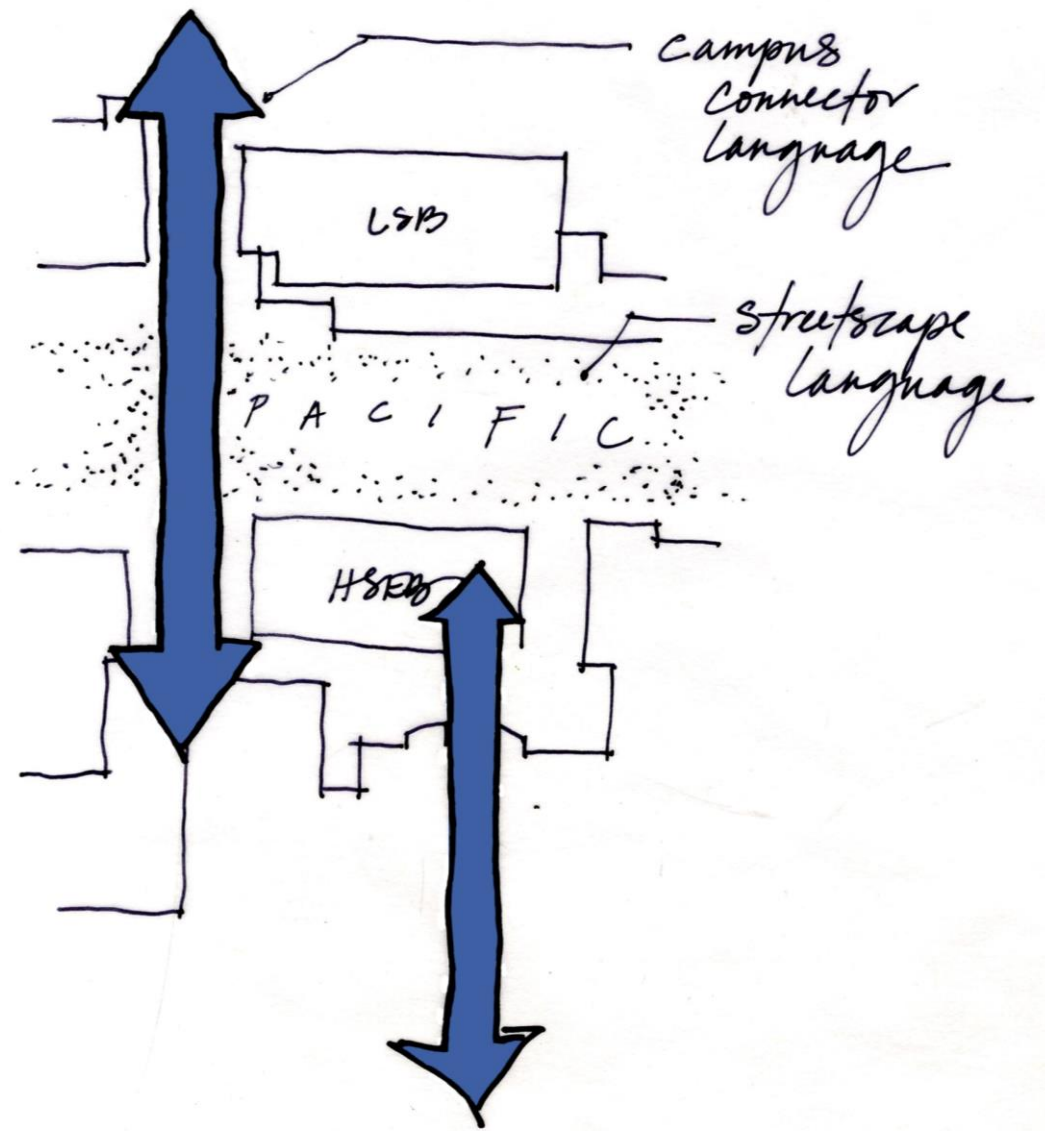 campus
connector
language
LSB
streetscape
language
PACIFIC
HSEB